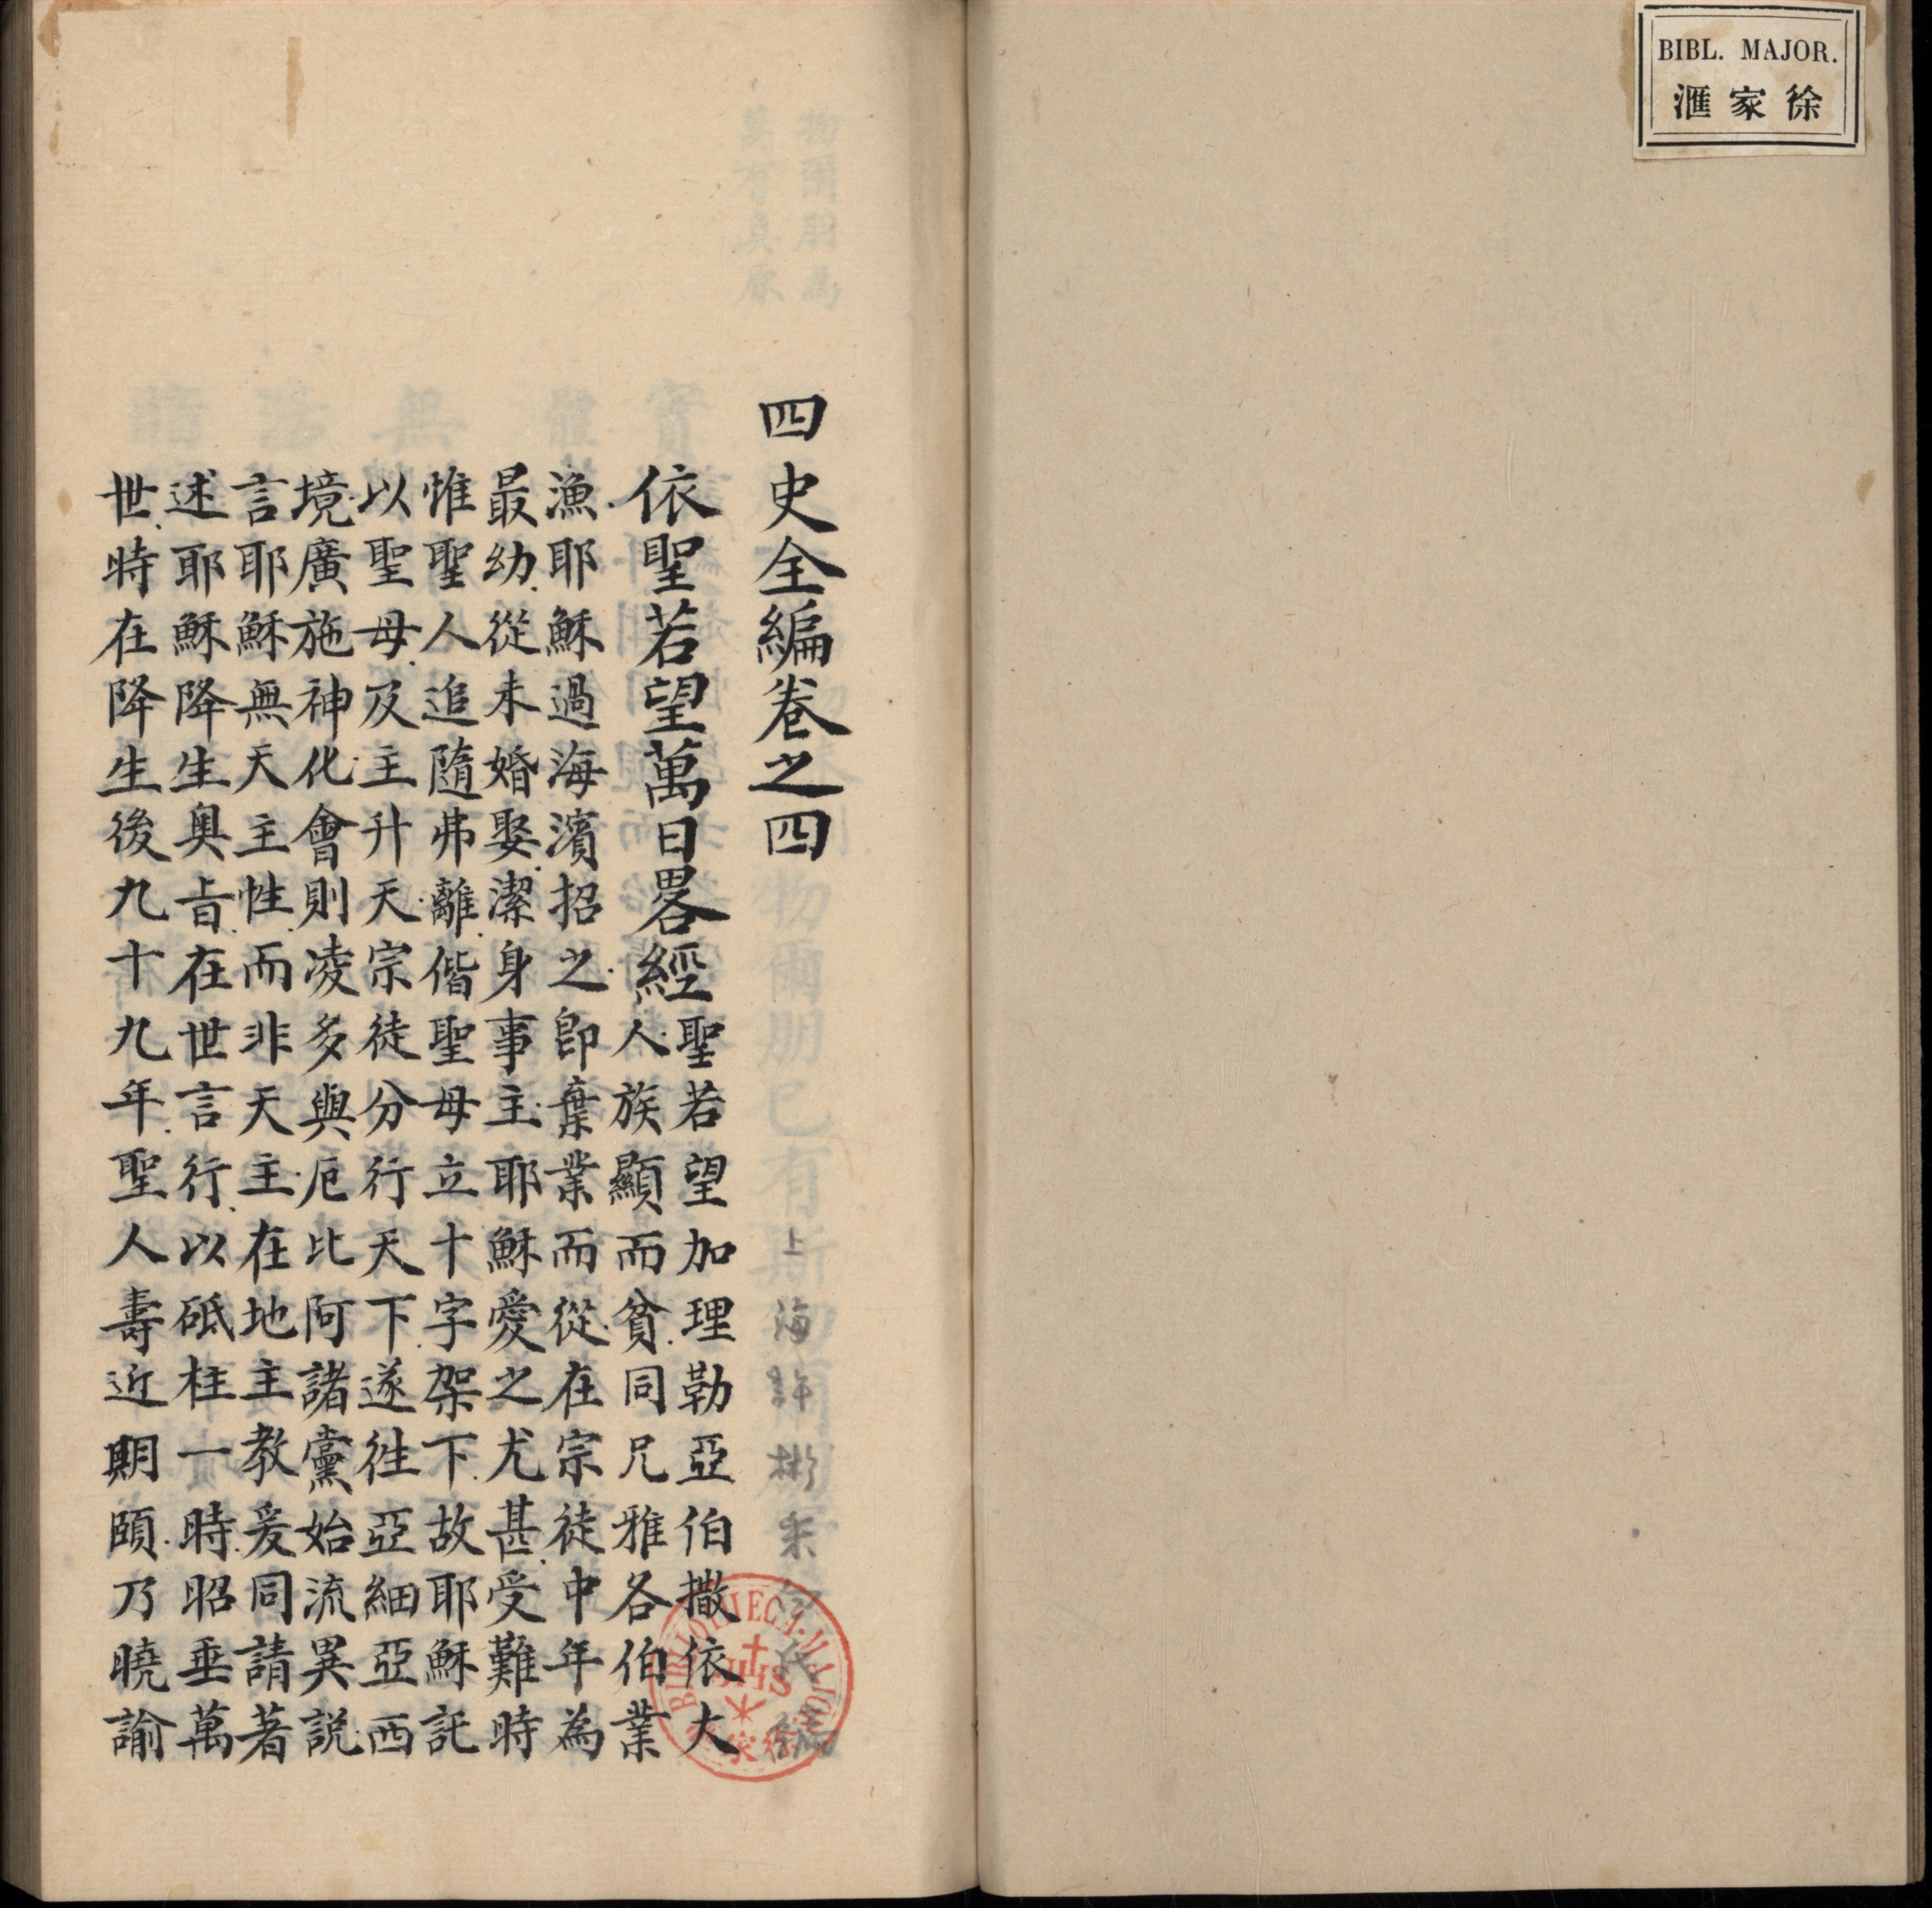 BIBL. MAJOR.
徐家滙
四史全編卷之四
上海許彬采白氏編
依聖若望萬日畧經聖若望加理勒亞伯撒依大
人族顯而貧同兄雅各伯業
漁耶穌過海濱招之卽棄業而從在宗徒中年為
最幼從未婚娶潔身事主耶穌愛之尤甚受難時
惟聖人追隨弗離偕聖母立十字架下故耶穌託
以聖母及主升天宗徒分行天下遂徃亞細亞西
境廣施神化會則凌多與厄比阿諸黨始流異説
言耶穌無天主性而非天主在地主教爰同請著
述耶穌降生奥旨在世言行以砥柱一時昭垂萬
世時在降生後九十九年聖人壽近期頤乃曉諭
BIBLIOTHECA MAJOR